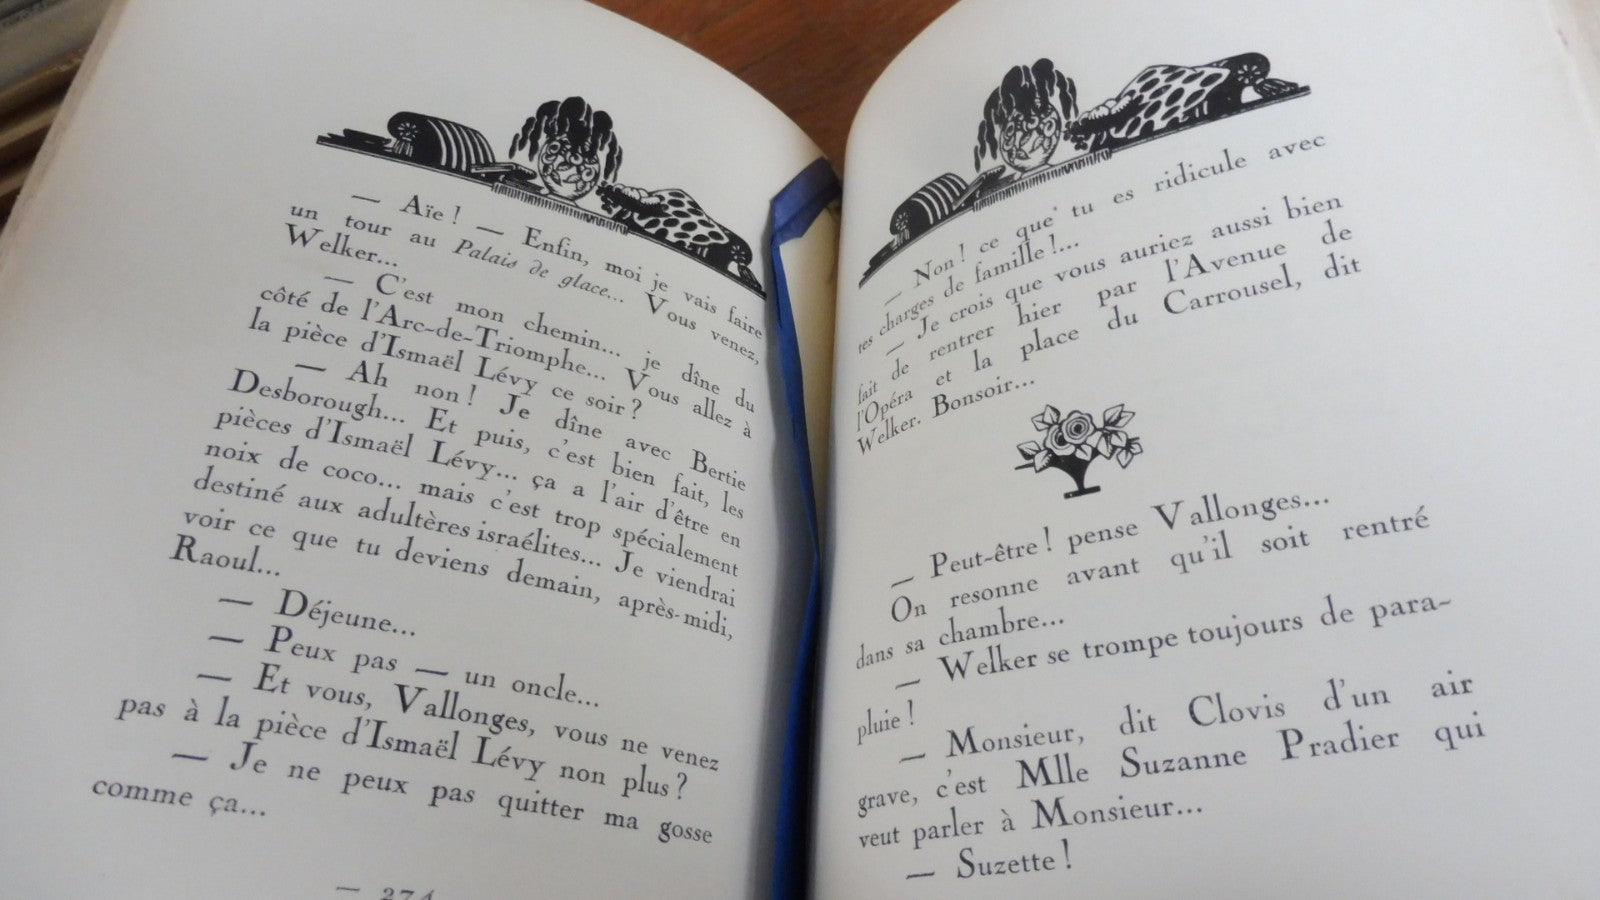 — Aïe ! — Enfin, moi je vais faire
un tour au Palais de glace... Vous venez,
Welker...
— C'est mon chemin... je dîne du
côté de l'Arc-de-Triomphe... Vous allez à
la pièce d'Ismaël Lévy ce soir ?
— Ah non ! Je dîne avec Bertie
Desborough... Et puis, c'est bien fait, les
pièces d'Ismaël Lévy... ça a l'air d'être en
noix de coco... mais c'est trop spécialement
destiné aux adultères israélites... Je viendrai
voir ce que tu deviens demain, après-midi,
Raoul...
— Déjeune...
— Peux pas — un oncle...
— Et vous, Vallonges, vous ne venez
pas à la pièce d'Ismaël Lévy non plus ?
— Je ne peux pas quitter ma gosse
comme ça...
— 274
— Non ! ce que tu es ridicule avec
tes charges de famille !...
— Je crois que vous auriez aussi bien
fait de rentrer hier par l'Avenue de
l'Opéra et la place du Carrousel, dit
Welker. Bonsoir...
— Peut-être ! pense Vallonges...
On resonne avant qu'il soit rentré
dans sa chambre...
— Welker se trompe toujours de para-
pluie !
— Monsieur, dit Clovis d'un air
grave, c'est Mlle Suzanne Pradier qui
veut parler à Monsieur...
— Suzette !